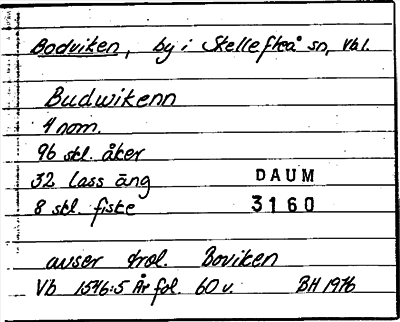 Bodviken, by i Skellefteå sn, Vbl.
Budwikenn
4 nom.
96 skl. åker
32 lass äng
DAUM
8 skl. fiske
3160
avser trol. Boviken
Vb 1546:5 År fol. 60 v. BH 1976